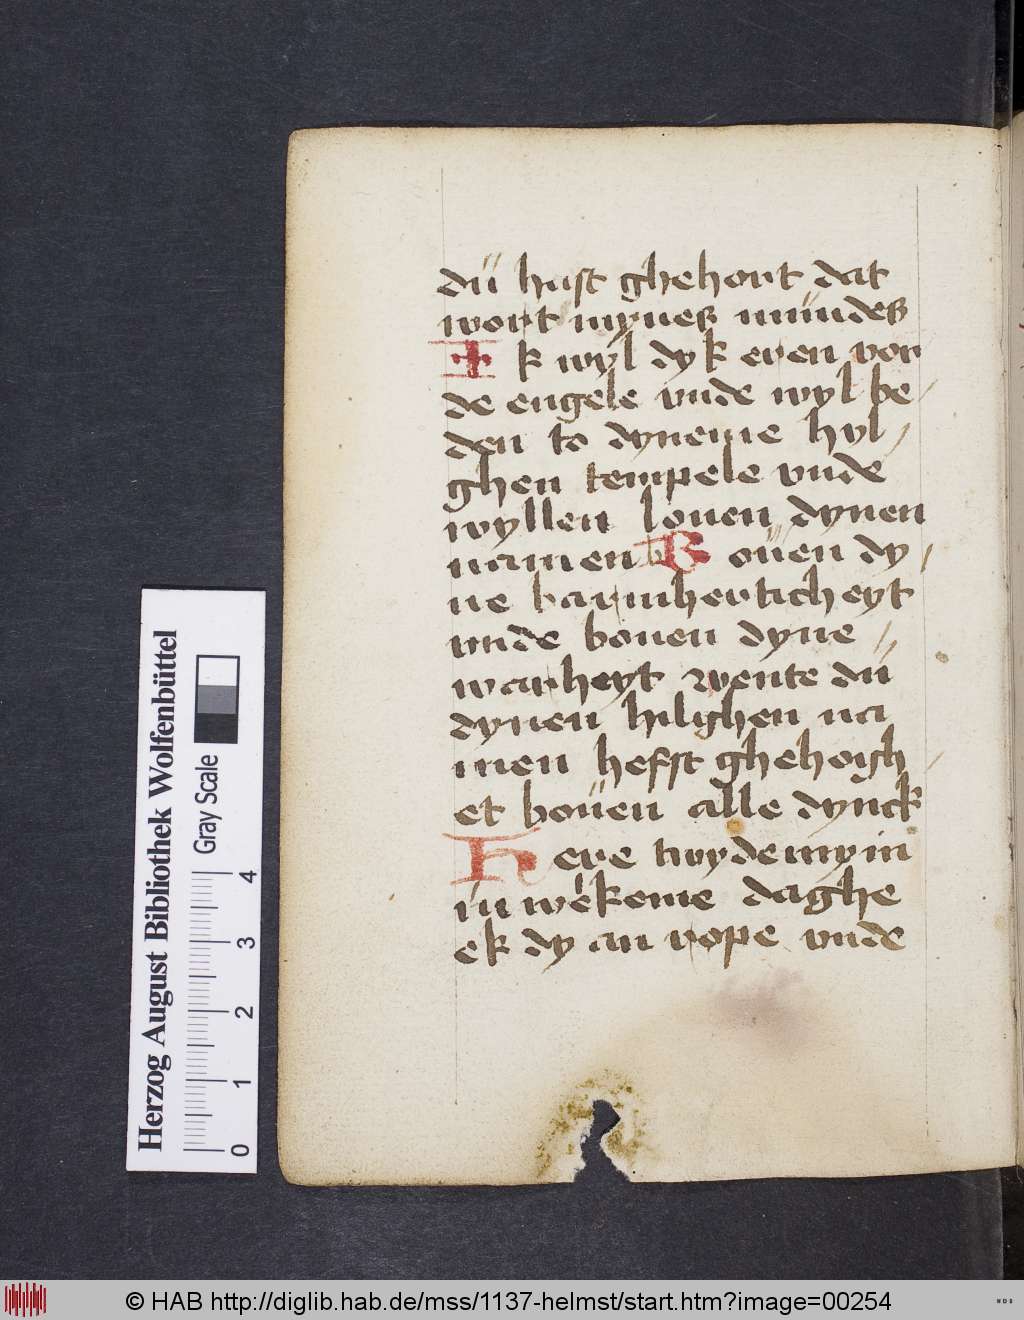 dü hast ghehort dat
wort mynes mündes
Ik wyl dyk eren vor
de engele vnde wyl be/
den to dyneme hyl/
ghen tempele vnde
wyllen louen dynen
namen Boüen dy/
ne barmherticheyt
vnde bouen dyne
warheyt wente dü
dynen hilghen na
men hefst ghehoigh/
et boüen alle dynck
Here twyde my in
in wekome daghe
ek dy an rope vnde
Herzog August Bibliothek Wolfenbüttel
Gray Scale
0 1 2 3 4
© HAB http://diglib.hab.de/mss/1137-helmst/start.htm?image=00254